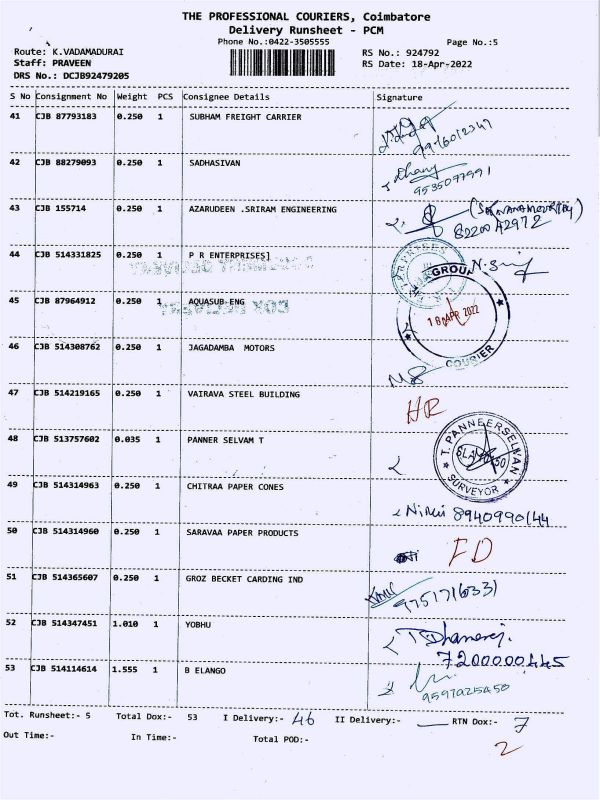 THE PROFESSIONAL COURIERS, Coimbatore
Delivery Runsheet - PCM
Phone No.:0422-3505555 Page No.:5
Route: K.VADAMADURAI RS No.: 924792
Staff: PRAVEEN RS Date: 18-Apr-2022
DRS No.: DCJB92479205
S No Consignment No Weight PCS Consignee Details Signature
41 CJB 87793183 0.250 1 SUBHAM FREIGHT CARRIER
42 CJB 88279093 0.250 1 SADHASIVAN
9535097991
43 CJB 155714 0.250 1 AZARUDEEN .SRIRAM ENGINEERING
8220042972
44 CJB 514331825 0.250 1 P R ENTERPRISES]
45 CJB 87964912 0.250 1 AQUASUB ENG
GROUP
18 APR 2022
COURIER
46 CJB 514308762 0.250 1 JAGADAMBA MOTORS
47 CJB 514219165 0.250 1 VAIRAVA STEEL BUILDING
HR
48 CJB 513757602 0.035 1 PANNER SELVAM T
T. PANNEERSELVAN
SURVEYOR
49 CJB 514314963 0.250 1 CHITRAA PAPER CONES
8940990144
50 CJB 514314960 0.250 1 SARAVAA PAPER PRODUCTS
FD
51 CJB 514365607 0.250 1 GROZ BECKET CARDING IND
9751716331
52 CJB 514347451 1.010 1 YOBHU
T Dhanaraj.
7200000445
53 CJB 514114614 1.555 1 B ELANGO
Tot. Runsheet:- 5 Total Dox:- 53 I Delivery:- 46 II Delivery:- RTN Dox:- 7
Out Time:- In Time:- Total POD:- 2